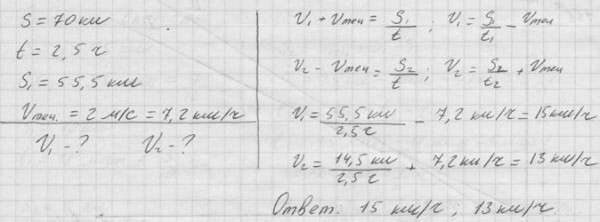 S = 70 км
t = 2,5 ч
S₁ = 55,5 км
Vтеч. = 2 м/с = 7,2 км/ч
V₁ - ? V₂ - ?
V₁ + Vтеч = S₁/t ; V₁ = S₁/t₁ - Vтеч
V₂ - Vтеч = S₂/t ; V₂ = S₂/t₂ + Vтеч
V₁ = 55,5 км/2,5 ч - 7,2 км/ч = 15 км/ч
V₂ = 14,5 км/2,5 ч + 7,2 км/ч = 13 км/ч
Ответ: 15 км/ч ; 13 км/ч.